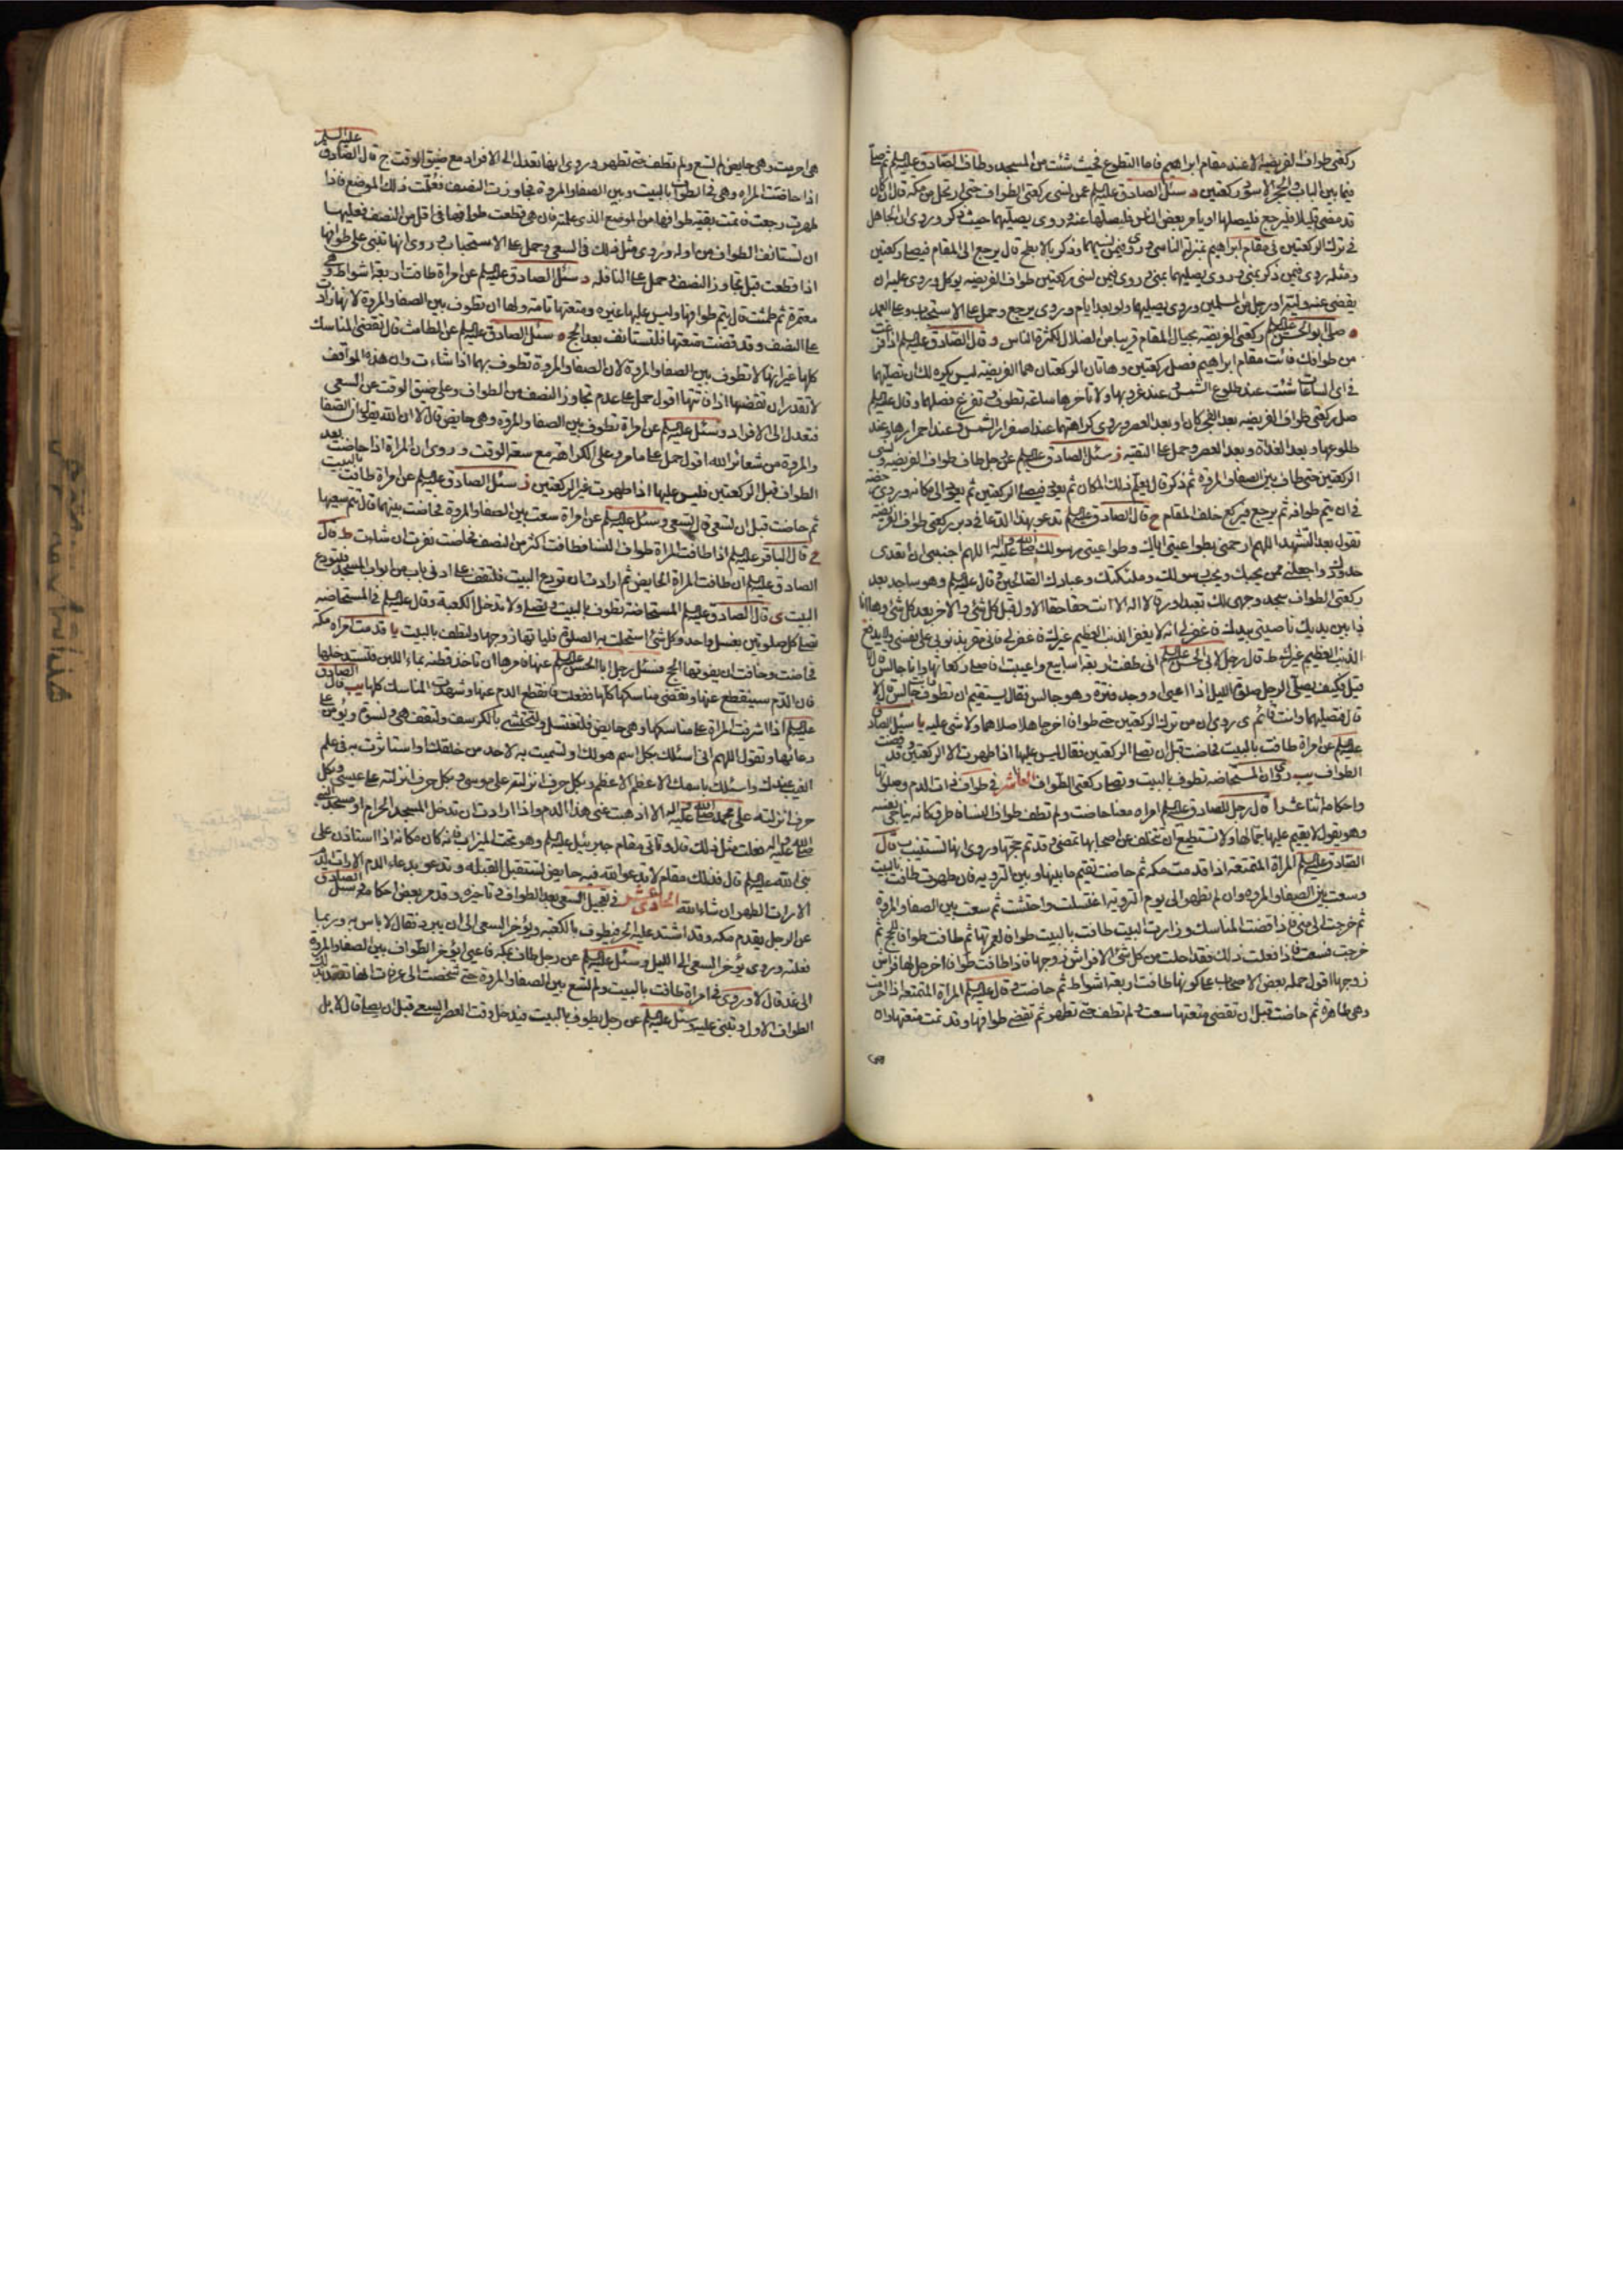 ركعتي طواف الفريضة الا عند مقام ابراهيم فاما التطوع فحيث شئت من المسجد وطاف الصادق عليه السلم ثم صلى
فيما بين الباب والحجر الاسود ركعتين د سئل الصادق عليه السلم عمن نسي ركعتي الطواف حتى ارتحل من مكة قال ان كان
قد مضى قليلا فليرجع فليصلهما او يامر بعض الناس فليصلهما عنه وروى يصليهما حيث ذكر وروى ان الجاهل
في ترك الركعتين في مقام ابراهيم بمنزلة الناسي وروى فيمن نسيهما وذكر بالابطح قال يرجع الى المقام فيصلي ركعتين
ومثله روى فيمن ذكر بمنى وروى يصليهما بمنى وروى فيمن نسي ركعتين طواف الفريضة يوكل وروى عليه ان
يقضي عنه وليه او رجل من المسلمين وروى يصليهما ولو بعد ايام وروى يرجع وحمل على الاستحباب وعلى العمد
ه صلى ابو الحسن عليه السلم ركعتي الفريضة بحيال المقام قريبا من الضلال لكثرة الناس و قال الصادق عليه السلم اذا فرغت
من طوافك فائت مقام ابراهيم فصل ركعتين وهاتان الركعتان هما الفريضة ليس يكره لك ان تصليهما
في اى الساعات شئت عند طلوع الشمس وعند غروبها ولا تأخرها ساعة تطوف وتفرغ فصلهما وقال عليه السلم
صل ركعتي طواف الفريضة بعد الفجر كان او بعد العصر وروى كراهتهما عند اصفرار الشمس وعند احمرارها وعند
طلوعها وبعد الغداة وبعد العصر وحمل على التقية ز سئل الصادق عليه السلم عن رجل طاف طواف الفريضة ونسي
الركعتين حتى طاف بين الصفا والمروة ثم ذكر قال يعلم ذلك المكان ثم يعود فيصلي الركعتين ثم يعود الى مكانه وروى رخصة
في ان يتم طوافه ثم يرجع فيركع خلف المقام ح قال الصادق عليه السلم تدعو بهذا الدعا في دبر ركعتي طواف الفريضة
تقول بعد التشهد اللهم ارحمني بطواعيتي اياك وطواعيتي رسولك صلى الله عليه واله اللهم اجنبني ان اتعدى
حدودك واجعلني ممن يحبك ويحب رسولك وملئكتك وعبادك الصالحين وقال عليه السلم وهو ساجد بعد
ركعتي الطواف سجد وجهى لك تعبدا ورقا لا اله الا انت حقا حقا الاول قبل كل شئ والاخر بعد كل شئ وها انا
ذا بين يديك ناصيتي بيدك فاغفر لي انه لا يغفر الذنب العظيم غيرك فاغفر لي فاني مقر بذنوبي على نفسي ولا يدفع
الذنب العظيم غيرك ط قال رجل لابى الحسن عليه السلم اني طفت اربعة اسابيع واعييت افاصلي ركعاتها وانا جالس قال لا
قيل فكيف يصلي الرجل صلوة الليل اذا اعيى او وجد فترة وهو جالس فقال يستقيم ان تطوف جالسا قال لا
قال فتصليهما وانت قائم ى روى ان من ترك الركعتين حتى طواف اخر جاهلا صلاهما ولا شى عليه يا سئل الصادق
عليه السلم عن امراة طافت بالبيت فحاضت قبل ان تصلي الركعتين فقال ليس عليها اذا طهرت الا الركعتين وقد قضت
الطواف يب روى ان المستحاضة تطوف بالبيت وتصلي ركعتي الطواف العاشر في طواف ذات الدم وصلوتها
واحكامه اثنا عشر ا قال رجل للصادق عليه السلم امراة معنا حاضت ولم تطف طواف النساء فاطرق كانه يناجي نفسه
وهو يقول لا يقيم عليها جمالها ولا تستطيع ان تتخلف عن اصحابها تمضي وقد تم حجها وروى انها تستنيب ب قال
الصادق عليه السلم المراة المتمتعة اذا قدمت مكة ثم حاضت تقيم ما بينها وبين التروية فان طهرت طافت بالبيت
وسعت بين الصفا والمروة وان لم تطهر الى يوم التروية اغتسلت واحتشت ثم سعت بين الصفا والمروة
ثم خرجت الى منى فاذا قضت المناسك وزارت البيت طافت بالبيت طوافا لعمرتها ثم طافت طوافا للحج ثم
خرجت فسعت فاذا فعلت ذلك فقد احلت من كل شئ الا فراش زوجها فاذا طافت طوافا اخر حل لها فراش
زوجها اقول حمله بعض الاصحاب على كونها طافت اربعة اشواط ثم حاضت وقال عليه السلم المراة المتمتعة اذا احرمت
وهى طاهرة ثم حاضت قبل ان تقضي متعتها سعت ولم تطف حتى تطهر ثم تقضي طوافها وقد تمت متعتها وان
هى احرمت وهى حايض لم تسع ولم تطف حتى تطهر وروى انها تعدل الى الافراد مع ضيق الوقت ج قال الصادق عليه السلم
اذا حاضت المراة وهى في الطواف بالبيت وبين الصفا والمروة فجاوزت النصف فعلمت ذلك الموضع فاذا
طهرت رجعت فاتمت بقية طوافها من الموضع الذى علمته فان هى قطعت طوافها في اقل من النصف فعليها
ان تستانف الطواف من اوله وروى مثل ذلك في السعى وحمل على الاستحباب وروى انها تبني على طوافها
اذا قطعت قبل تجاوز النصف وحمل على النافلة د سئل الصادق عليه السلم عن امراة طافت اربعة اشواط وهى
معتمرة ثم طمثت قال يتم طوافها وليس عليها غيره ومتعتها تامة ولها ان تطوف بين الصفا والمروة لانها زادت
على النصف وقد قضت متعتها فلتستانف بعد الحج ه سئل الصادق عليه السلم عن الطامث قال تقضي المناسك
كلها غير انها لا تطوف بين الصفا والمروة لان الصفا والمروة تطوف بهما اذا شاءت وان هذه المواقف
لا تقدر ان تقضيها اذا فاتتها اقول حمل على عدم تجاوز النصف من الطواف وعلى ضيق الوقت عن السعى
فتعدل الى الافراد و سئل عليه السلم عن امراة تطوف بين الصفا والمروة وهى حايض قال لا ان الله يقول ان الصفا
والمروة من شعائر الله اقول حمل على ما مر وعلى الكراهة مع سعة الوقت و روى ان المراة اذا حاضت بعد
الطواف قبل الركعتين فليس عليها اذا طهرت غير الركعتين ز سئل الصادق عليه السلم عن امراة طافت بالبيت
ثم حاضت قبل ان تسعى قال تسعى وسئل عليه السلم عن امراة سعت بين الصفا والمروة فحاضت بينهما قال تتم سعيها
ح قال الباقر عليه السلم اذا طافت المراة طواف النسا فطافت اكثر من النصف فحاضت نفرت ان شاءت ط قال
الصادق عليه السلم ان طافت المراة الحايض ثم ارادت ان تودع البيت فلتقف على ادنى باب من ابواب المسجد فلتودع
البيت ى قال الصادق عليه السلم المستحاضة تطوف بالبيت وتصلي ولا تدخل الكعبة وقال عليه السلم في المستحاضة
تصلي كل صلوتين بغسل واحد وكل شئ استحلت به الصلوة فلياتها زوجها ولتطف بالبيت يا قدمت امراة مكة
فحاضت وخافت ان يفوتها الحج فسئل رجل ابا الحسن عليه السلم عنها فامرها ان تاخذ قطنة بماء اللبن فلتستدخلها
فان الدم سينقطع عنها وتقضي مناسكها كلها ففعلت فانقطع الدم عنها وشهدت المناسك كلها يب قال الصادق
عليه السلم اذا اشرفت المراة على مناسكها وهى حايض فلتغتسل ولتحتشي بالكرسف ولتقف هى ونسوة ويؤمن على
دعائها وتقول اللهم اني اسئلك بكل اسم هو لك او تسميت به لاحد من خلقك او استاثرت به في علم
الغيب عندك واسئلك باسمك الاعظم الاعظم وبكل حرف انزلته على موسى وبكل حرف انزلته على عيسى وبكل
حرف انزلته على محمد صلى الله عليه واله الا اذهبت عني هذا الدم واذا ارادت ان تدخل المسجد الحرام او مسجد النبي
صلى الله عليه واله فعلت مثل ذلك قال وتأتي مقام جبرئيل عليه السلم وهو تحت الميزاب فانه كان مكانه اذا استاذن على
نبي الله عليه السلم قال فذلك مقام لا تدعو الله فيه حايض تستقبل القبلة وتدعو بدعاء الدم الا رات
الا رات الطهر ان شاء الله الحادى عشر في تعجيل السعى بعد الطواف وتاخيره وقد مر بعض احكامه سئل الصادق
عن الرجل يقدم مكة وقد اشتد عليه الحر فيطوف بالكعبة ويؤخر السعى الى ان يبرد فقال لا باس به وربما
فعلته وروى يؤخر السعى الى الليل وسئل عليه السلم عن رجل طاف بالكعبة فاعيى ايؤخر الطواف بين الصفا والمروة
الى غد قال لا وروى في امراة طافت بالبيت ولم تسع بين الصفا والمروة حتى شخصت الى عرفات
الطواف الاول وتبني عليه سئل عليه السلم عن رجل يطوف بالبيت فيدخل وقت العصر ايسعى قبل ان يصلي قال لا بل